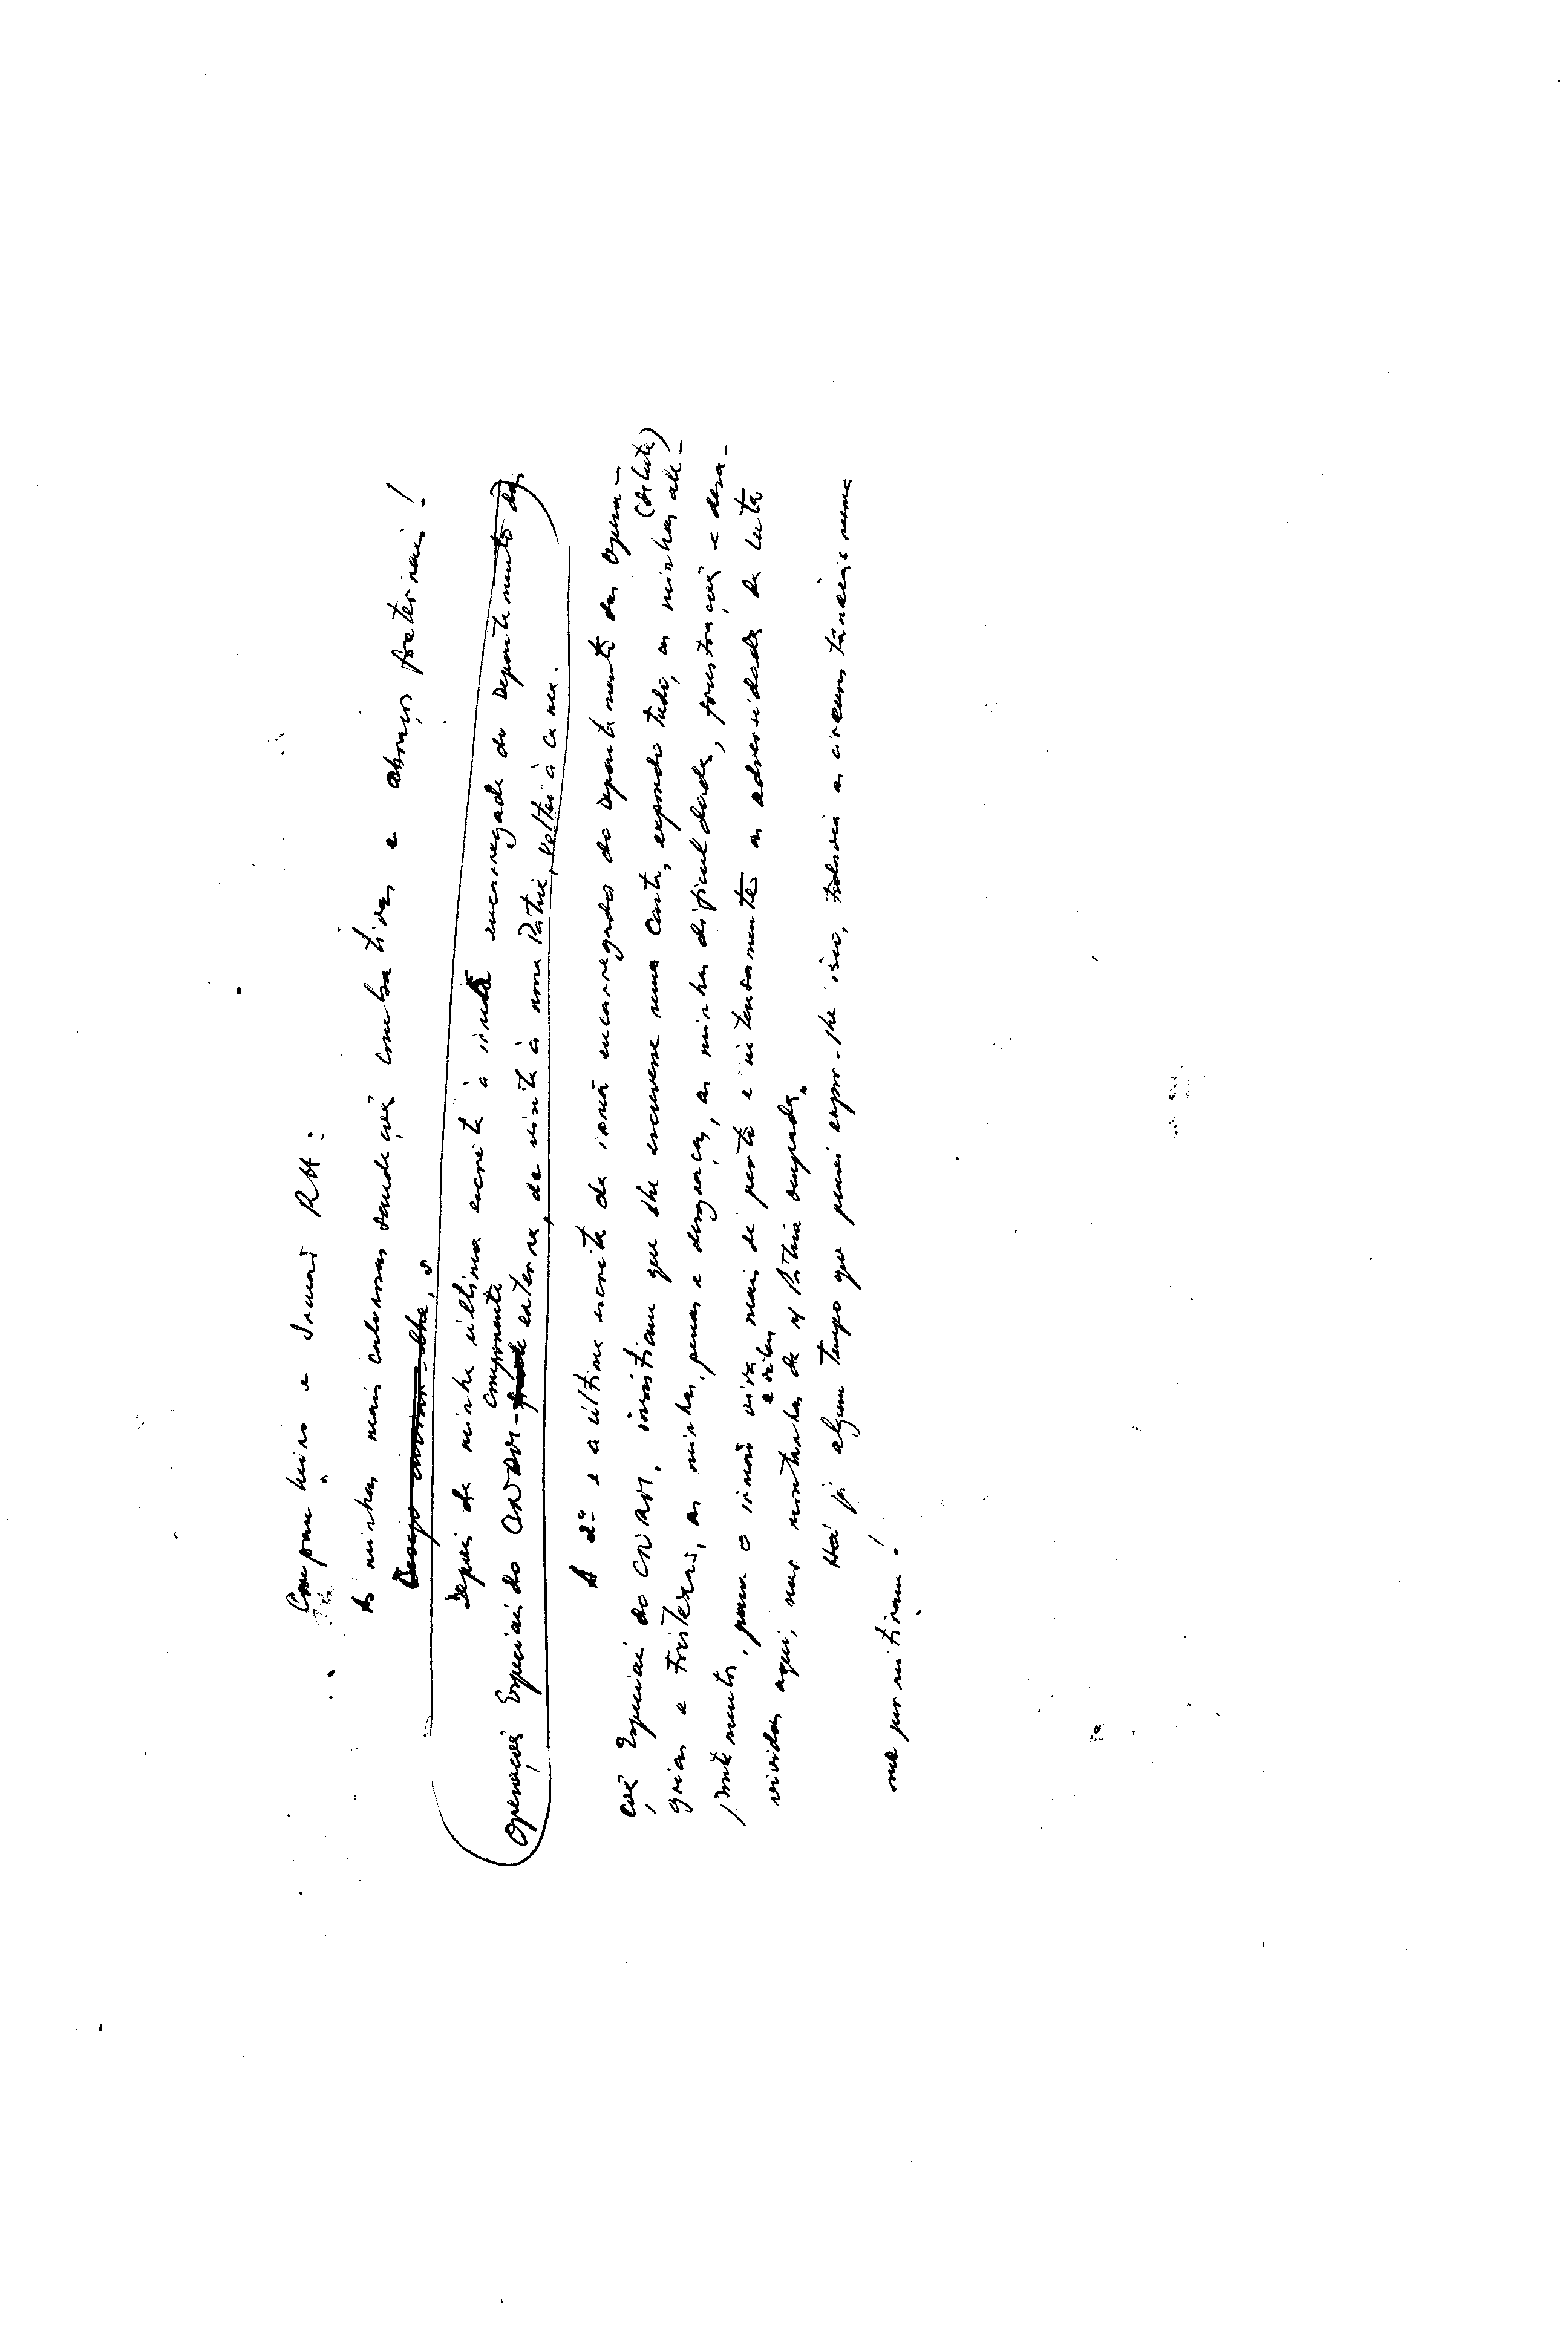 Companheiro e Irmão RH:
As minhas mais calorosas saudações combativas e abraços fraternais!
Desejo enviar-lhe, o
Depois da minha última escrita à irmã encarregada do Departamento das
componente
Operações Especiais do CNRM - externa, de visita à nossa Pátria, voltei à cama.
A 2ª e a última escrita da irmã encarregada do Departamento das Opera-
ções Especiais do CNRM, insistiam que lhe escrevesse uma carta, expondo tudo, as minhas ale-
(de luta)
grias e tristezas, as minhas penas e desgraças, as minhas dificuldades, frustrações e desa-
pontamentos, para o irmão viver mais de perto e intensamente as adversidades da luta
e vidas
vividas aqui, nas montanhas da n/ Pátria ocupada.
Há já algum tempo que pensei expor-lhe isso, todavia as circunstâncias nunca
me permitiram!